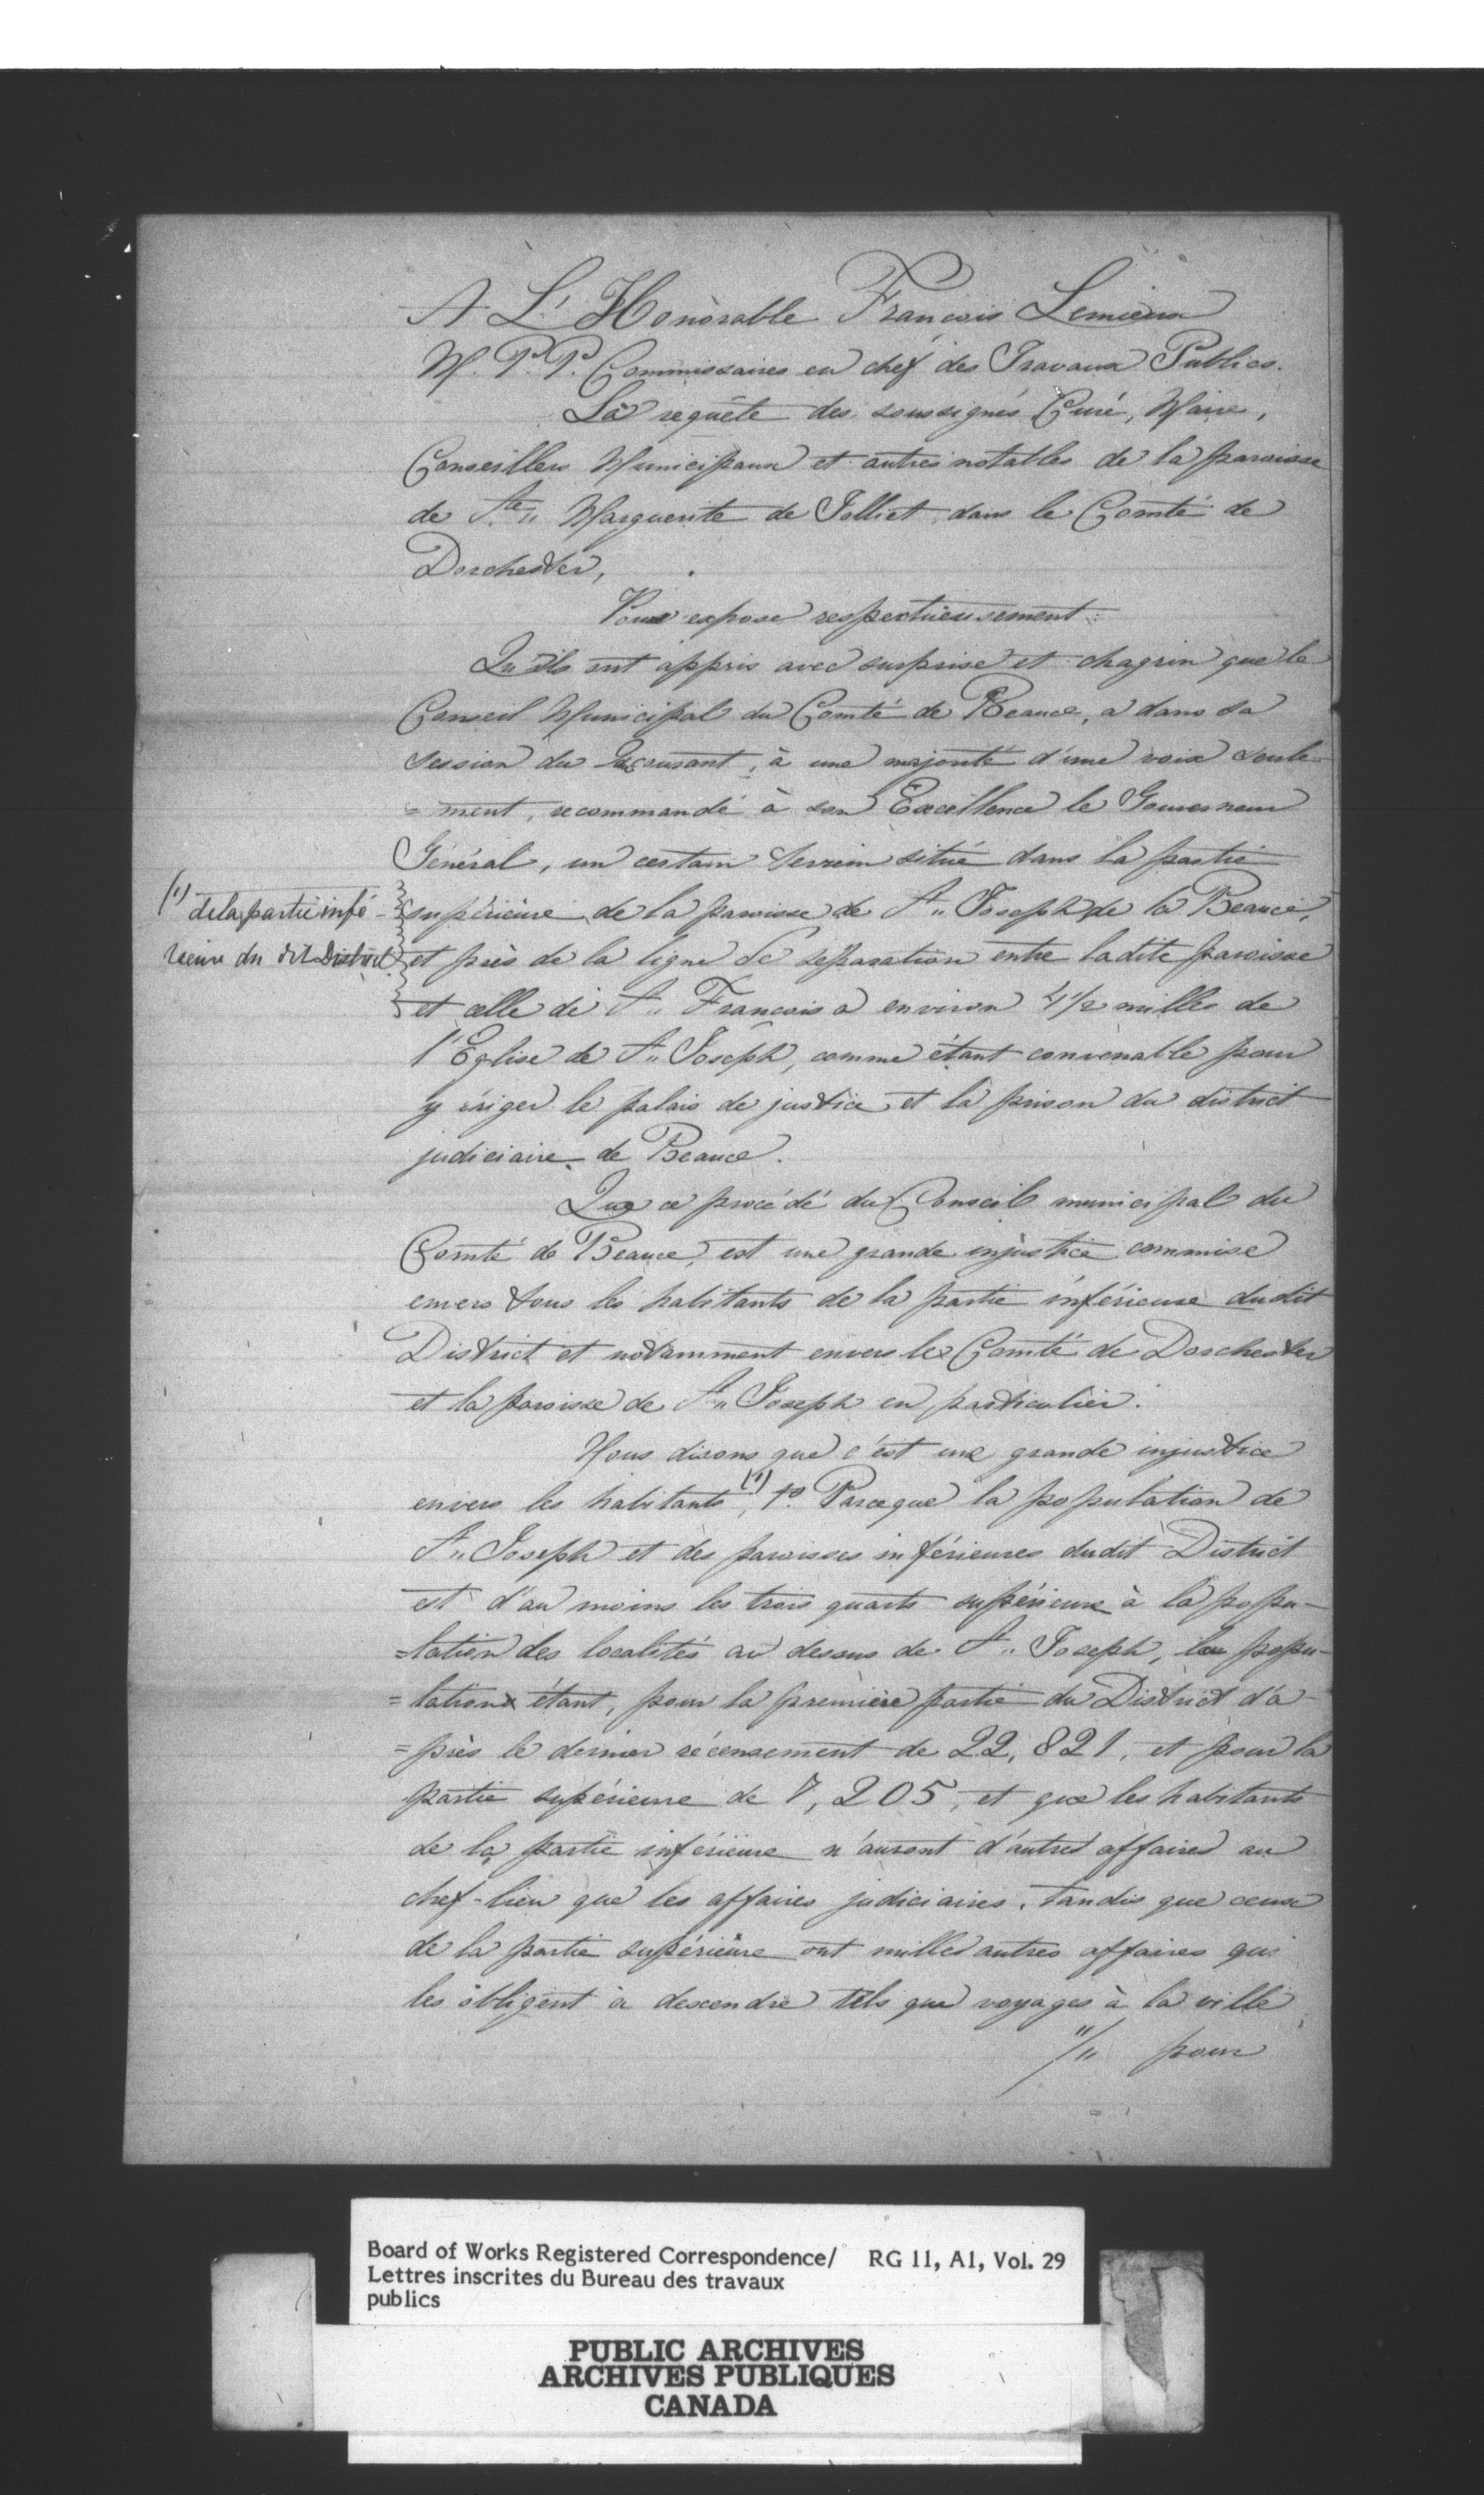 A L'Honorable Francois Lemieux
M. P. P. Commissaires en chef des Travaux Publics.
La requête des soussignés Curé, Maire,
Conseillers Municipaux et autres notables de la paroisse
de Ste„ Marguerite de Jolliet, dans le Comté de
Dorchester,
Vous expose respectueusement:
Qu'ils ont appris avec surprise et chagrin que le
Conseil Municipal du Comté de Beauce, a dans sa
session du courant, à une majorité d'une voix seule
= ment, recommandé à son Excellence le Gouverneur
Général, un certain terrein situé dans la partie
supérieure de la paroisse de St„ Joseph de la Beauce,
et près de la ligne de séparation entre ladite paroisse
et celle de St„ Francois a environ 4 1/2 milles de
l'Eglise de St„ Joseph, comme étant convenable pour
y ériger le palais de justice et la prison du district
judiciaire de Beauce.
Que ce procédé du Conseil municipal du
Comté de Beauce, est une grande injustice commise
envers tous les habitants de la partie inférieure dudit
District et notamment envers le Comté de Dorchester
et la paroisse de St„ Joseph en particulier.
Nous disons que c'est une grande injustice
envers les habitants (1), 1o. Parceque la population de
St„ Joseph et des paroisses inférieures dudit District
est d'au moins les trois quarts supérieure à la popu-
=lation des localités au dessus de St„ Joseph, la popu-
=lation étant, pour la première partie du District d'a-
=près le dernier récensement de 22,821, et pour la
partie supérieure de 7,205, et que les habitants
de la partie inférieure n'auront d'autres affaires au
chef-lieu que les affaires judiciaires, tandis que ceux
de la partie supérieure ont milles autres affaires qui
les obligent à descendre tels que voyages à la ville
"/„ pour
(1) de la partie infé-
rieure du dit District
Board of Works Registered Correspondence/ RG 11, A1, Vol. 29
Lettres inscrites du Bureau des travaux
publics
PUBLIC ARCHIVES
ARCHIVES PUBLIQUES
CANADA